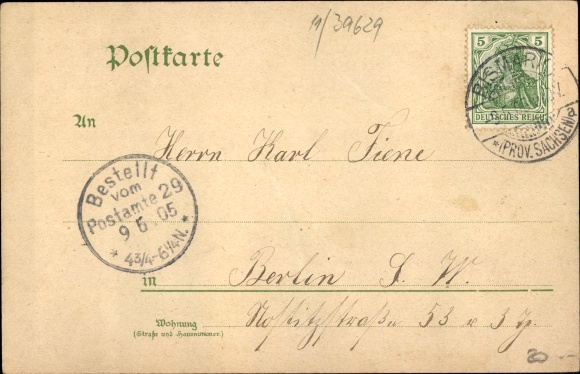 11/39629
Postkarte
5 5
DEUTSCHES REICH
BISMARK
*(PROV. SACHSEN)a
An
Herrn Karl Tiene
Bestellt
vom
Postamte 29
9 6 05
* 4¾-6¼N. *
in
Berlin S. W.
Wohnung
(Straße und Hausnummer)
Nostitzstraße 53
20